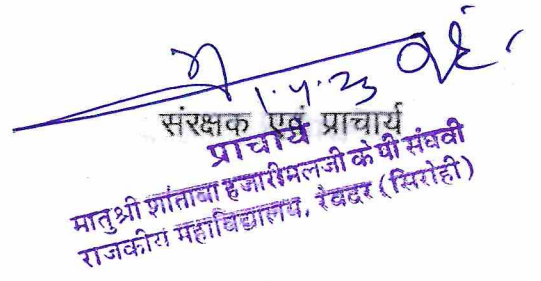 1.4.23
संरक्षक एवं प्राचार्य
प्राचार्य
मातुश्री शांताबा हजारीमलजी के पी संघवी
राजकीय महाविद्यालय, रेवदर (सिरोही)